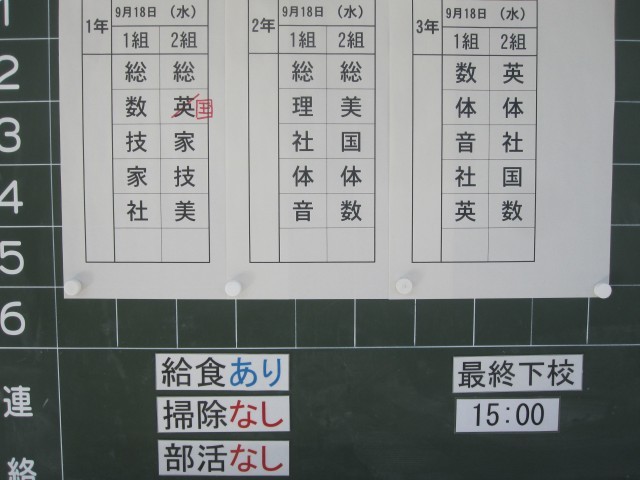 1
2
3
4
5
6
連
絡
1年
9月18日 (水)
1組 2組
総 総
数 英 国
技 家
家 技
社 美
2年
9月18日 (水)
1組 2組
総 総
理 美
社 国
体 体
音 数
3年
9月18日 (水)
1組 2組
数 英
体 体
音 社
社 国
英 数
給食あり
掃除なし
部活なし
最終下校
15:00